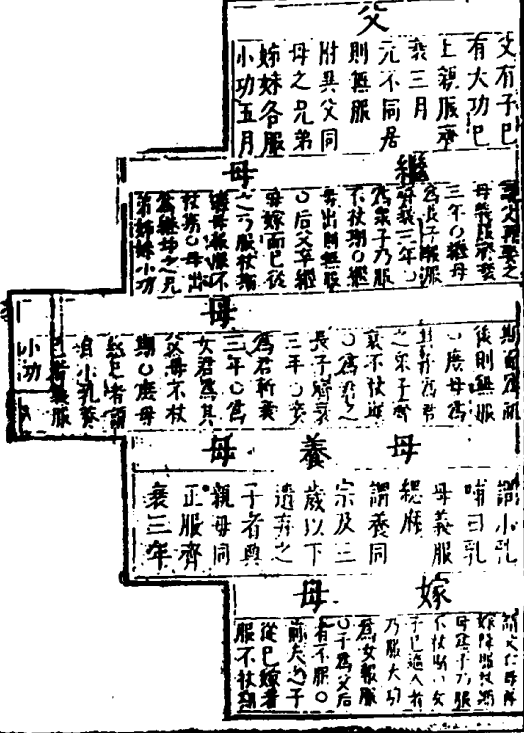 父
父有子巳
有大功巳
上親服齊
衰三月
元不同居
則無服
附異父同
母之兄弟
姊妹各服
小功五月
繼母
母義服齊衰
三年○繼母
為長子服
衰三年○
為衆子乃服
不杖期○繼
母出則無服
○后父卒繼
母嫁而已從
之乃服杖期
繼母報服不
杖期○母出
為繼母之兄
弟姊妹小功
母
後則無服
○庶母為
之衆子齊
衰不杖期
○為君之
長子齊衰
三年○妾
為君斬衰
三年○為
女君為其
父母不杖
期○庶母
慈己者謂
自小乳養
己者無服
小功
母
謂小乳
哺曰乳
母義服
緦麻
養母
謂養同
宗及三
歲以下
遺弃之
子者與
親母同
正服齊
衰三年
嫁母
嫁降服杖期
母為子乃服
不杖期○女
子已適人者
乃服大功
為女報服
○子為父后
者不服○
前夫之子
從已嫁者
服不杖期